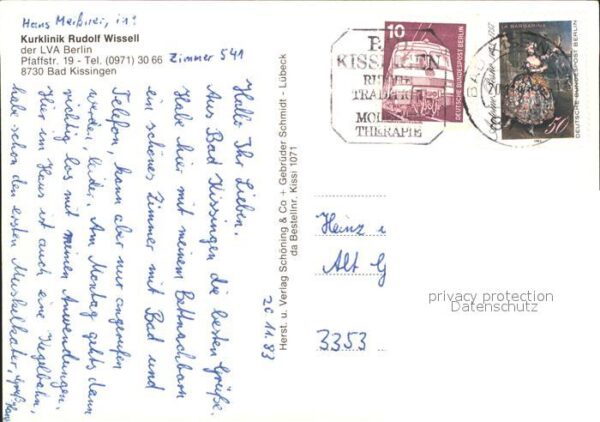 Hans
Kurklinik Rudolf Wissell
der LVA Berlin
Pfaffstr. 19 - Tel. (0971) 30 66
8730 Bad Kissingen
Zimmer 541
Hallo Ihr Lieben.
Aus Bad Kissingen die besten Grüße.
Habe hier mit meinem Bettnachbarn
ein schönes Zimmer mit Bad und
Telefon, kann aber nur angerufen
werden, leider. Am Montag gehts dann
richtig los mit meinen Anwendungen.
Hier im Haus ist auch eine Kegelbahn,
habe schon den ersten Muskelkater, Gruß Hans
20.11.83
Herst. u. Verlag Schöning & Co + Gebrüder Schmidt - Lübeck
da Bestellnr. Kissi 1071
BAD
KISSINGEN
TRADITION
THERAPIE
10
DEUTSCHE BUNDESPOST BERLIN
LA BARBARINA
50
DEUTSCHE BUNDESPOST BERLIN
Heinz
Alt G
3353
privacy protection
Datenschutz